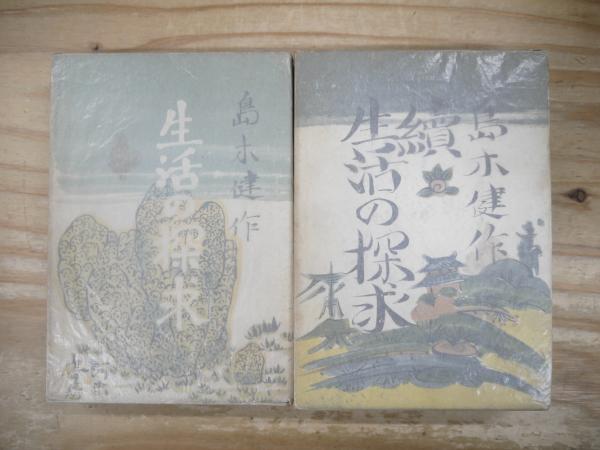 島木健作
生活の探求
島木健作
續
生活の探求